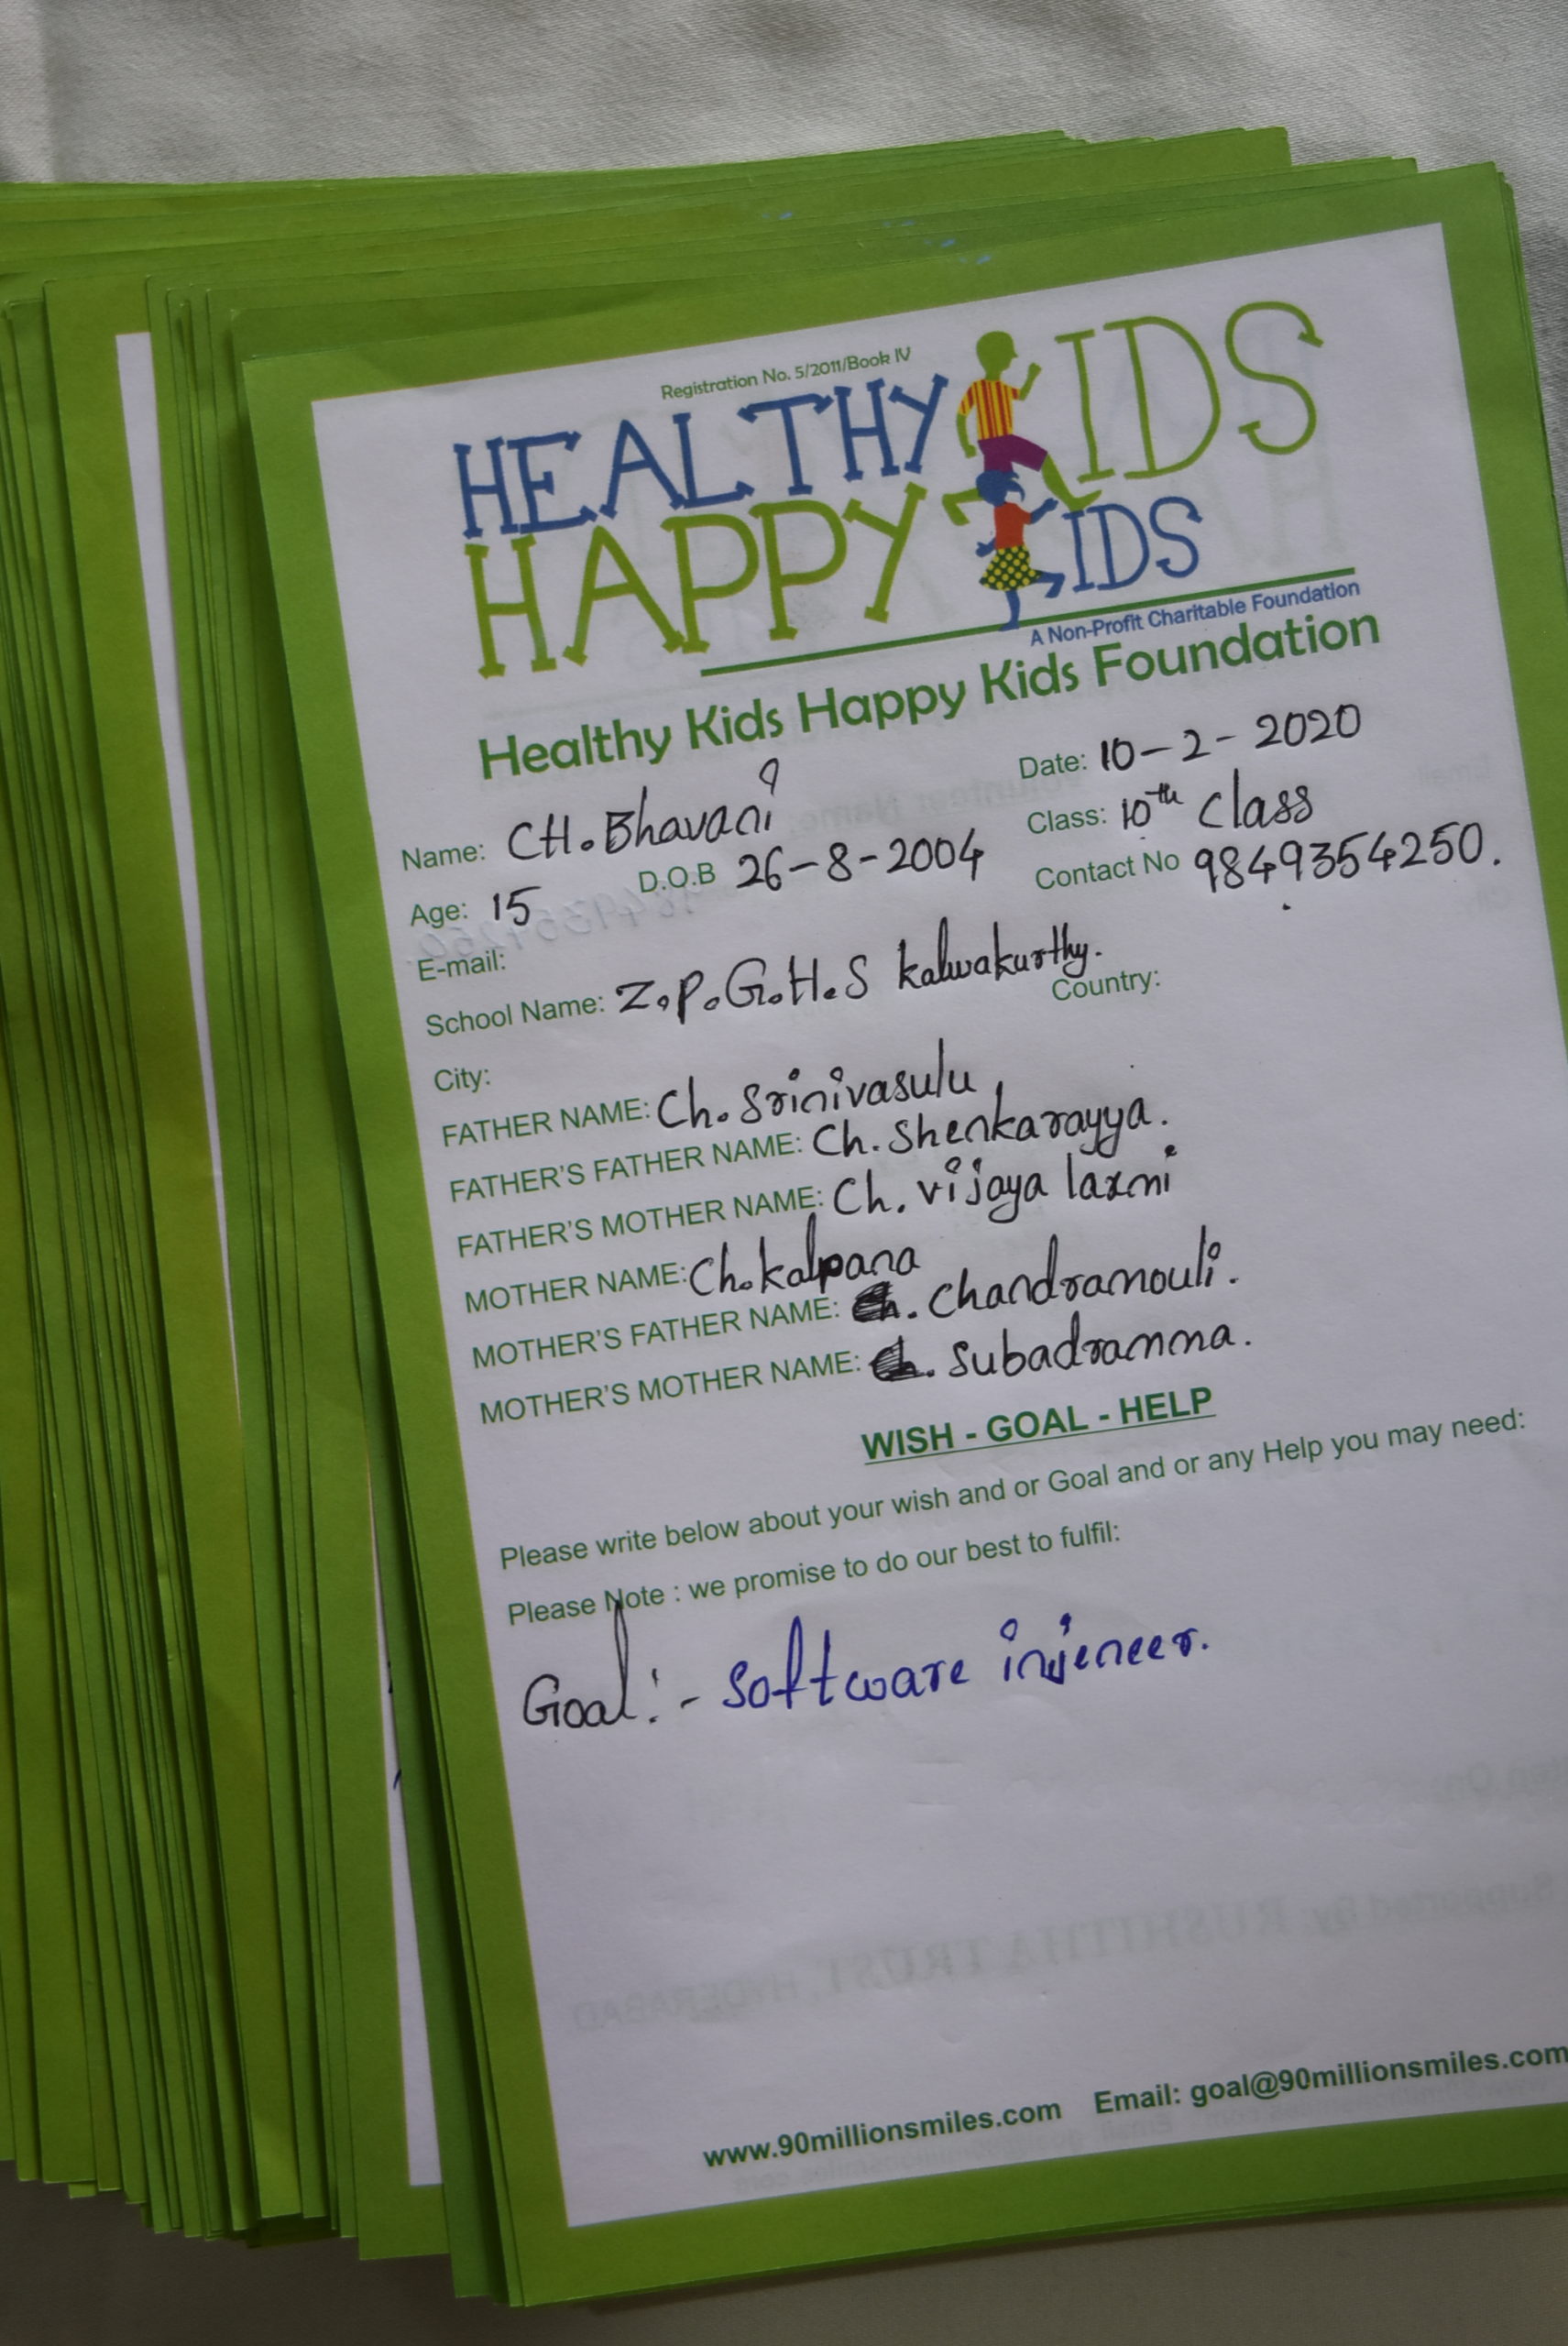 Registration No. 5/2011/Book IV
HEALTHY KIDS
HAPPY KIDS
A Non-Profit Charitable Foundation
Healthy Kids Happy Kids Foundation
Date: 10-2-2020
Name: CH.Bhavani
Class: 10th class
Age: 15 D.O.B 26-8-2004
Contact No 9849354250.
E-mail:
School Name: Z.P.G.H.S kalwakurthy.
Country:
City:
FATHER NAME: Ch. Srinivasulu
FATHER'S FATHER NAME: Ch. Shenkarayya.
FATHER'S MOTHER NAME: Ch. vijaya laxmi
MOTHER NAME: Ch. kalpana
MOTHER'S FATHER NAME: Chandramouli.
MOTHER'S MOTHER NAME: Subadramma.
WISH - GOAL - HELP
Please write below about your wish and or Goal and or any Help you may need:
Please Note : we promise to do our best to fulfil:
Goal:- Software injeneer.
www.90millionsmiles.com Email: goal@90millionsmiles.com